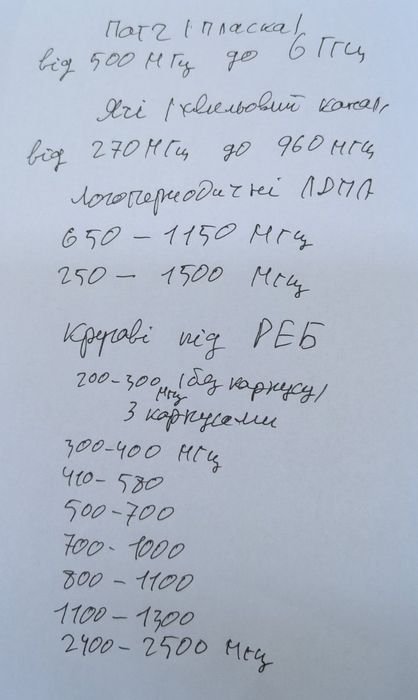 Патч /пласка/
від 500 МГц до 6 Ггц
Ягі /хвильовий канал/
від 270 МГц до 960 МГц
Логопериодичні ЛПДА
650 – 1150 МГц
250 – 1500 МГц
Кругові під РЕБ
200-300 МГц /без каркусу/
З каркусами
300-400 МГц
410- 580
500-700
700- 1000
800 – 1100
1100 – 1300
2400 – 2500 МГц